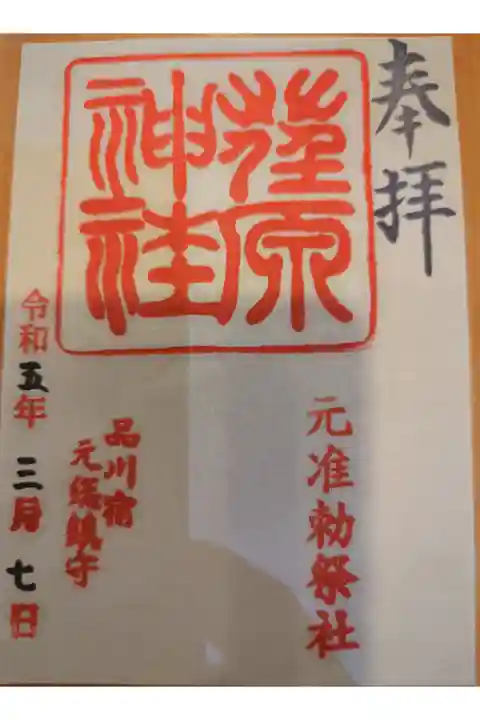 奉拝
元准勅祭社
荏原
神社
品川宿
元総鎮守
令和五年 三月 七日